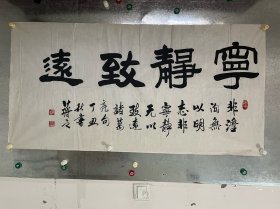 寧靜致遠
非澹
泊無
以明
志非
寧靜
无以
致遠
諸葛
亮句
丁丑
秋書